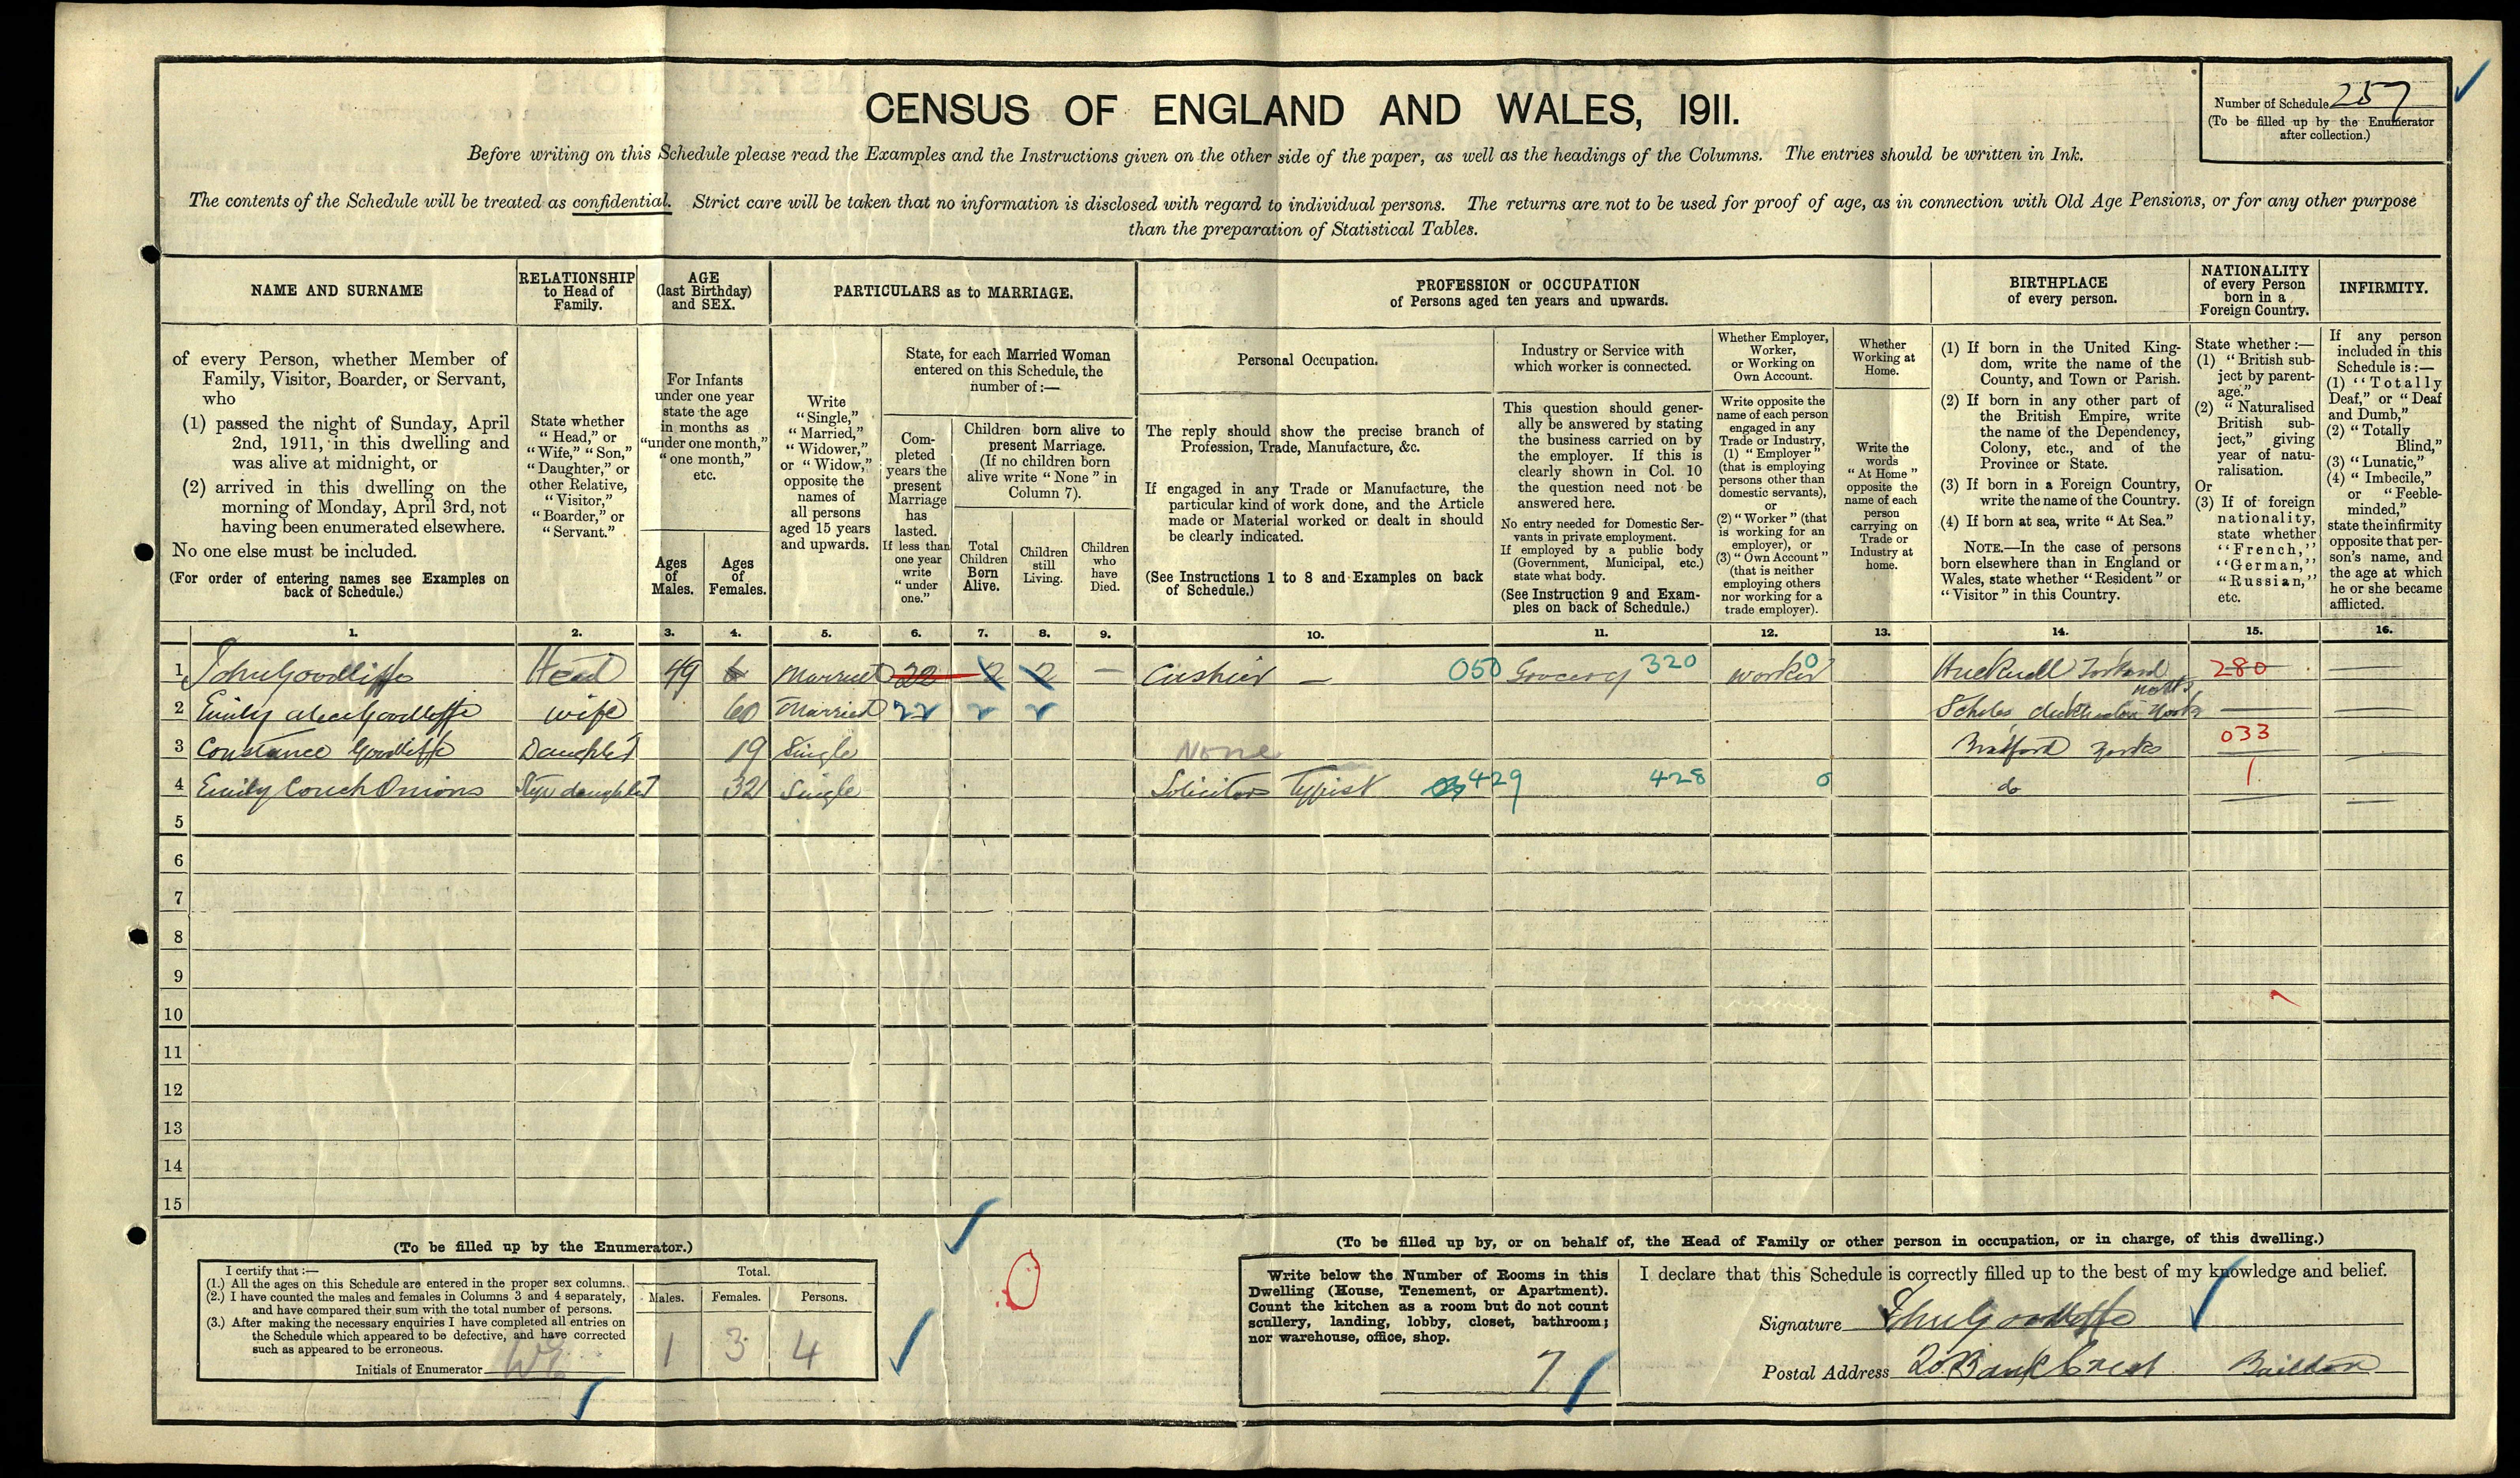 CENSUS OF ENGLAND AND WALES, 1911.
Number of Schedule 257
(To be filled up by the Enumerator
after collection.)
Before writing on this Schedule please read the Examples and the Instructions given on the other side of the paper, as well as the headings of the Columns. The entries should be written in Ink.
The contents of the Schedule will be treated as confidential. Strict care will be taken that no information is disclosed with regard to individual persons. The returns are not to be used for proof of age, as in connection with Old Age Pensions, or for any other purpose
than the preparation of Statistical Tables.
NAME AND SURNAME
of every Person, whether Member of
Family, Visitor, Boarder, or Servant,
who
(1) passed the night of Sunday, April
2nd, 1911, in this dwelling and
was alive at midnight, or
(2) arrived in this dwelling on the
morning of Monday, April 3rd, not
having been enumerated elsewhere.
No one else must be included.
(For order of entering names see Examples on
back of Schedule.)
RELATIONSHIP
to Head of
Family.
State whether
"Head," or
"Wife," "Son,"
"Daughter," or
other Relative,
"Visitor,"
"Boarder," or
"Servant."
AGE
(last Birthday)
and SEX.
For Infants
under one year
state the age
in months as
"under one month,"
"one month,"
etc.
Ages
of
Males.
Ages
of
Females.
PARTICULARS as to MARRIAGE.
Write
"Single,"
"Married,"
"Widower,"
or "Widow,"
opposite the
names of
all persons
aged 15 years
and upwards.
State, for each Married Woman
entered on this Schedule, the
number of:—
Com-
pleted
years the
present
Marriage
has
lasted.
If less than
one year
write
"under
one."
Children born alive to
present Marriage.
(If no children born
alive write "None" in
Column 7).
Total
Children
Born
Alive.
Children
still
Living.
Children
who
have
Died.
PROFESSION or OCCUPATION
of Persons aged ten years and upwards.
Personal Occupation.
The reply should show the precise branch of
Profession, Trade, Manufacture, &c.
If engaged in any Trade or Manufacture, the
particular kind of work done, and the Article
made or Material worked or dealt in should
be clearly indicated.
(See Instructions 1 to 8 and Examples on back
of Schedule.)
Industry or Service with
which worker is connected.
This question should gener-
ally be answered by stating
the business carried on by
the employer. If this is
clearly shown in Col. 10
the question need not be
answered here.
No entry needed for Domestic Ser-
vants in private employment.
If employed by a public body
(Government, Municipal, etc.)
state what body.
(See Instruction 9 and Exam-
ples on back of Schedule.)
Whether Employer,
Worker,
or Working on
Own Account.
Write opposite the
name of each person
engaged in any
Trade or Industry,
(1) "Employer"
(that is employing
persons other than
domestic servants),
or
(2) "Worker" (that
is working for an
employer), or
(3) "Own Account"
(that is neither
employing others
nor working for a
trade employer).
Whether
Working at
Home.
Write the
words
"At Home"
opposite the
name of each
person
carrying on
Trade or
Industry at
home.
BIRTHPLACE
of every person.
(1) If born in the United King-
dom, write the name of the
County, and Town or Parish.
(2) If born in any other part of
the British Empire, write
the name of the Dependency,
Colony, etc., and of the
Province or State.
(3) If born in a Foreign Country,
write the name of the Country.
(4) If born at sea, write "At Sea."
NOTE.—In the case of persons
born elsewhere than in England or
Wales, state whether "Resident" or
"Visitor" in this Country.
NATIONALITY
of every Person
born in a
Foreign Country.
State whether:—
(1) "British sub-
ject by parent-
age."
(2) "Naturalised
British sub-
ject," giving
year of natu-
ralisation.
Or
(3) If of foreign
nationality,
state whether
"French,"
"German,"
"Russian,"
etc.
INFIRMITY.
If any person
included in this
Schedule is:—
(1) "Totally
Deaf," or "Deaf
and Dumb,"
(2) "Totally
Blind,"
(3) "Lunatic,"
(4) "Imbecile,"
or "Feeble-
minded,"
state the infirmity
opposite that per-
son's name, and
the age at which
he or she became
afflicted.
1. 2. 3. 4. 5. 6. 7. 8. 9. 10. 11. 12. 13. 14. 15. 16.
1 John Goodliffe Head 49 Married 22 2 2 — Cashier — 050 Grocery 320 Worker 0 Hucknall Torkard Notts 280
2 Emily Alice Goodliffe wife 60 Married 22 2 2 Scholes Yorks
3 Constance Goodliffe Daughter 19 Single None Bradford Yorks 033
4 Emily Couch Onions Step daughter 32 Single Solicitors Typist 429 428 0 do 1
5
6
7
8
9
10
11
12
13
14
15
(To be filled up by the Enumerator.)
I certify that:—
(1.) All the ages on this Schedule are entered in the proper sex columns.
(2.) I have counted the males and females in Columns 3 and 4 separately,
and have compared their sum with the total number of persons.
(3.) After making the necessary enquiries I have completed all entries on
the Schedule which appeared to be defective, and have corrected
such as appeared to be erroneous.
Initials of Enumerator
Total.
Males. Females. Persons.
1 3 4
0
(To be filled up by, or on behalf of, the Head of Family or other person in occupation, or in charge, of this dwelling.)
Write below the Number of Rooms in this
Dwelling (House, Tenement, or Apartment).
Count the kitchen as a room but do not count
scullery, landing, lobby, closet, bathroom;
nor warehouse, office, shop.
7
I declare that this Schedule is correctly filled up to the best of my knowledge and belief.
Signature John Goodliffe
Postal Address 20 Bank Crest Baildon